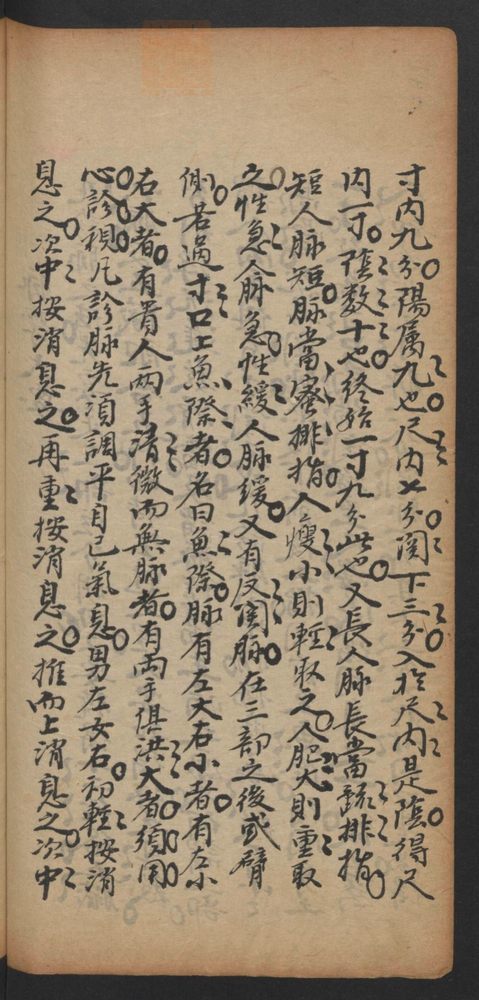 寸內九分陽属九也尺內七分関下三分入扵尺內是隂得尺
內一寸隂数十也終始一寸九分此也又長人脉長當䟽排指
短人脉短脉當宻排指人瘦小則輕取之人肥大則重取
之性急人脉急性緩人脉緩又有反関脉在三部之後或臂
側若過寸口上魚際者名曰魚際脉有左大右小者有左小
右大者有貴人兩手清微而無脉者有兩手俱洪大者須用
心診視凡診脉先須調平自己氣息男左女右初輕按消
息之次中按消息之再重按消息之推而上消息之次中